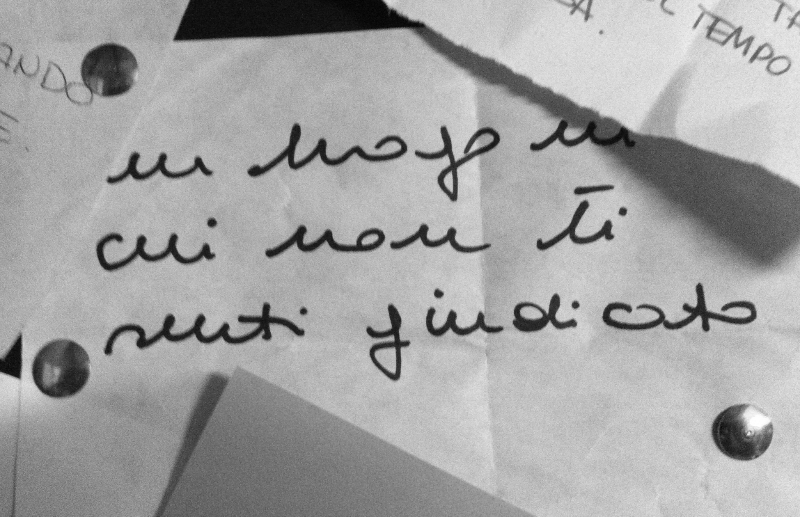 TEMPO
TA
A.
ANDO
E.
un luogo in
cui non ti
senti giudicato